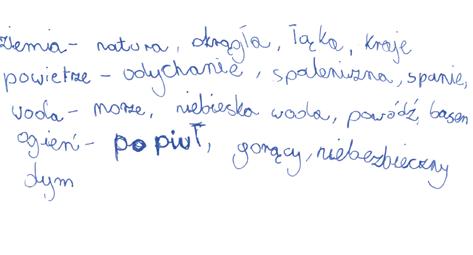 ziemia - natura, okrągła, łąka, kraje
powietrze - odychanie, spaleniszna, spanie,
woda - morze, niebieska woda, powódź, basen
ogień - popiuł, gorący, niebezbieczny
dym